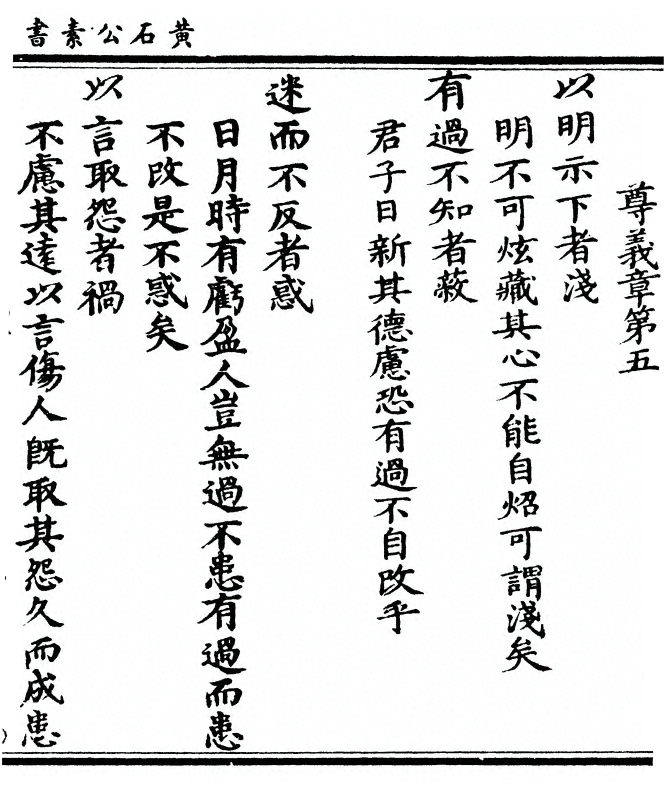 黃石公素書
尊義章第五
以明示下者淺
明不可炫藏其心不能自炤可謂淺矣
有過不知者蔽
君子日新其德慮恐有過不自改乎
迷而不反者惑
日月時有虧盈人豈無過不患有過而患
不改是不惑矣
以言取怨者禍
不慮其遠以言傷人旣取其怨久而成患